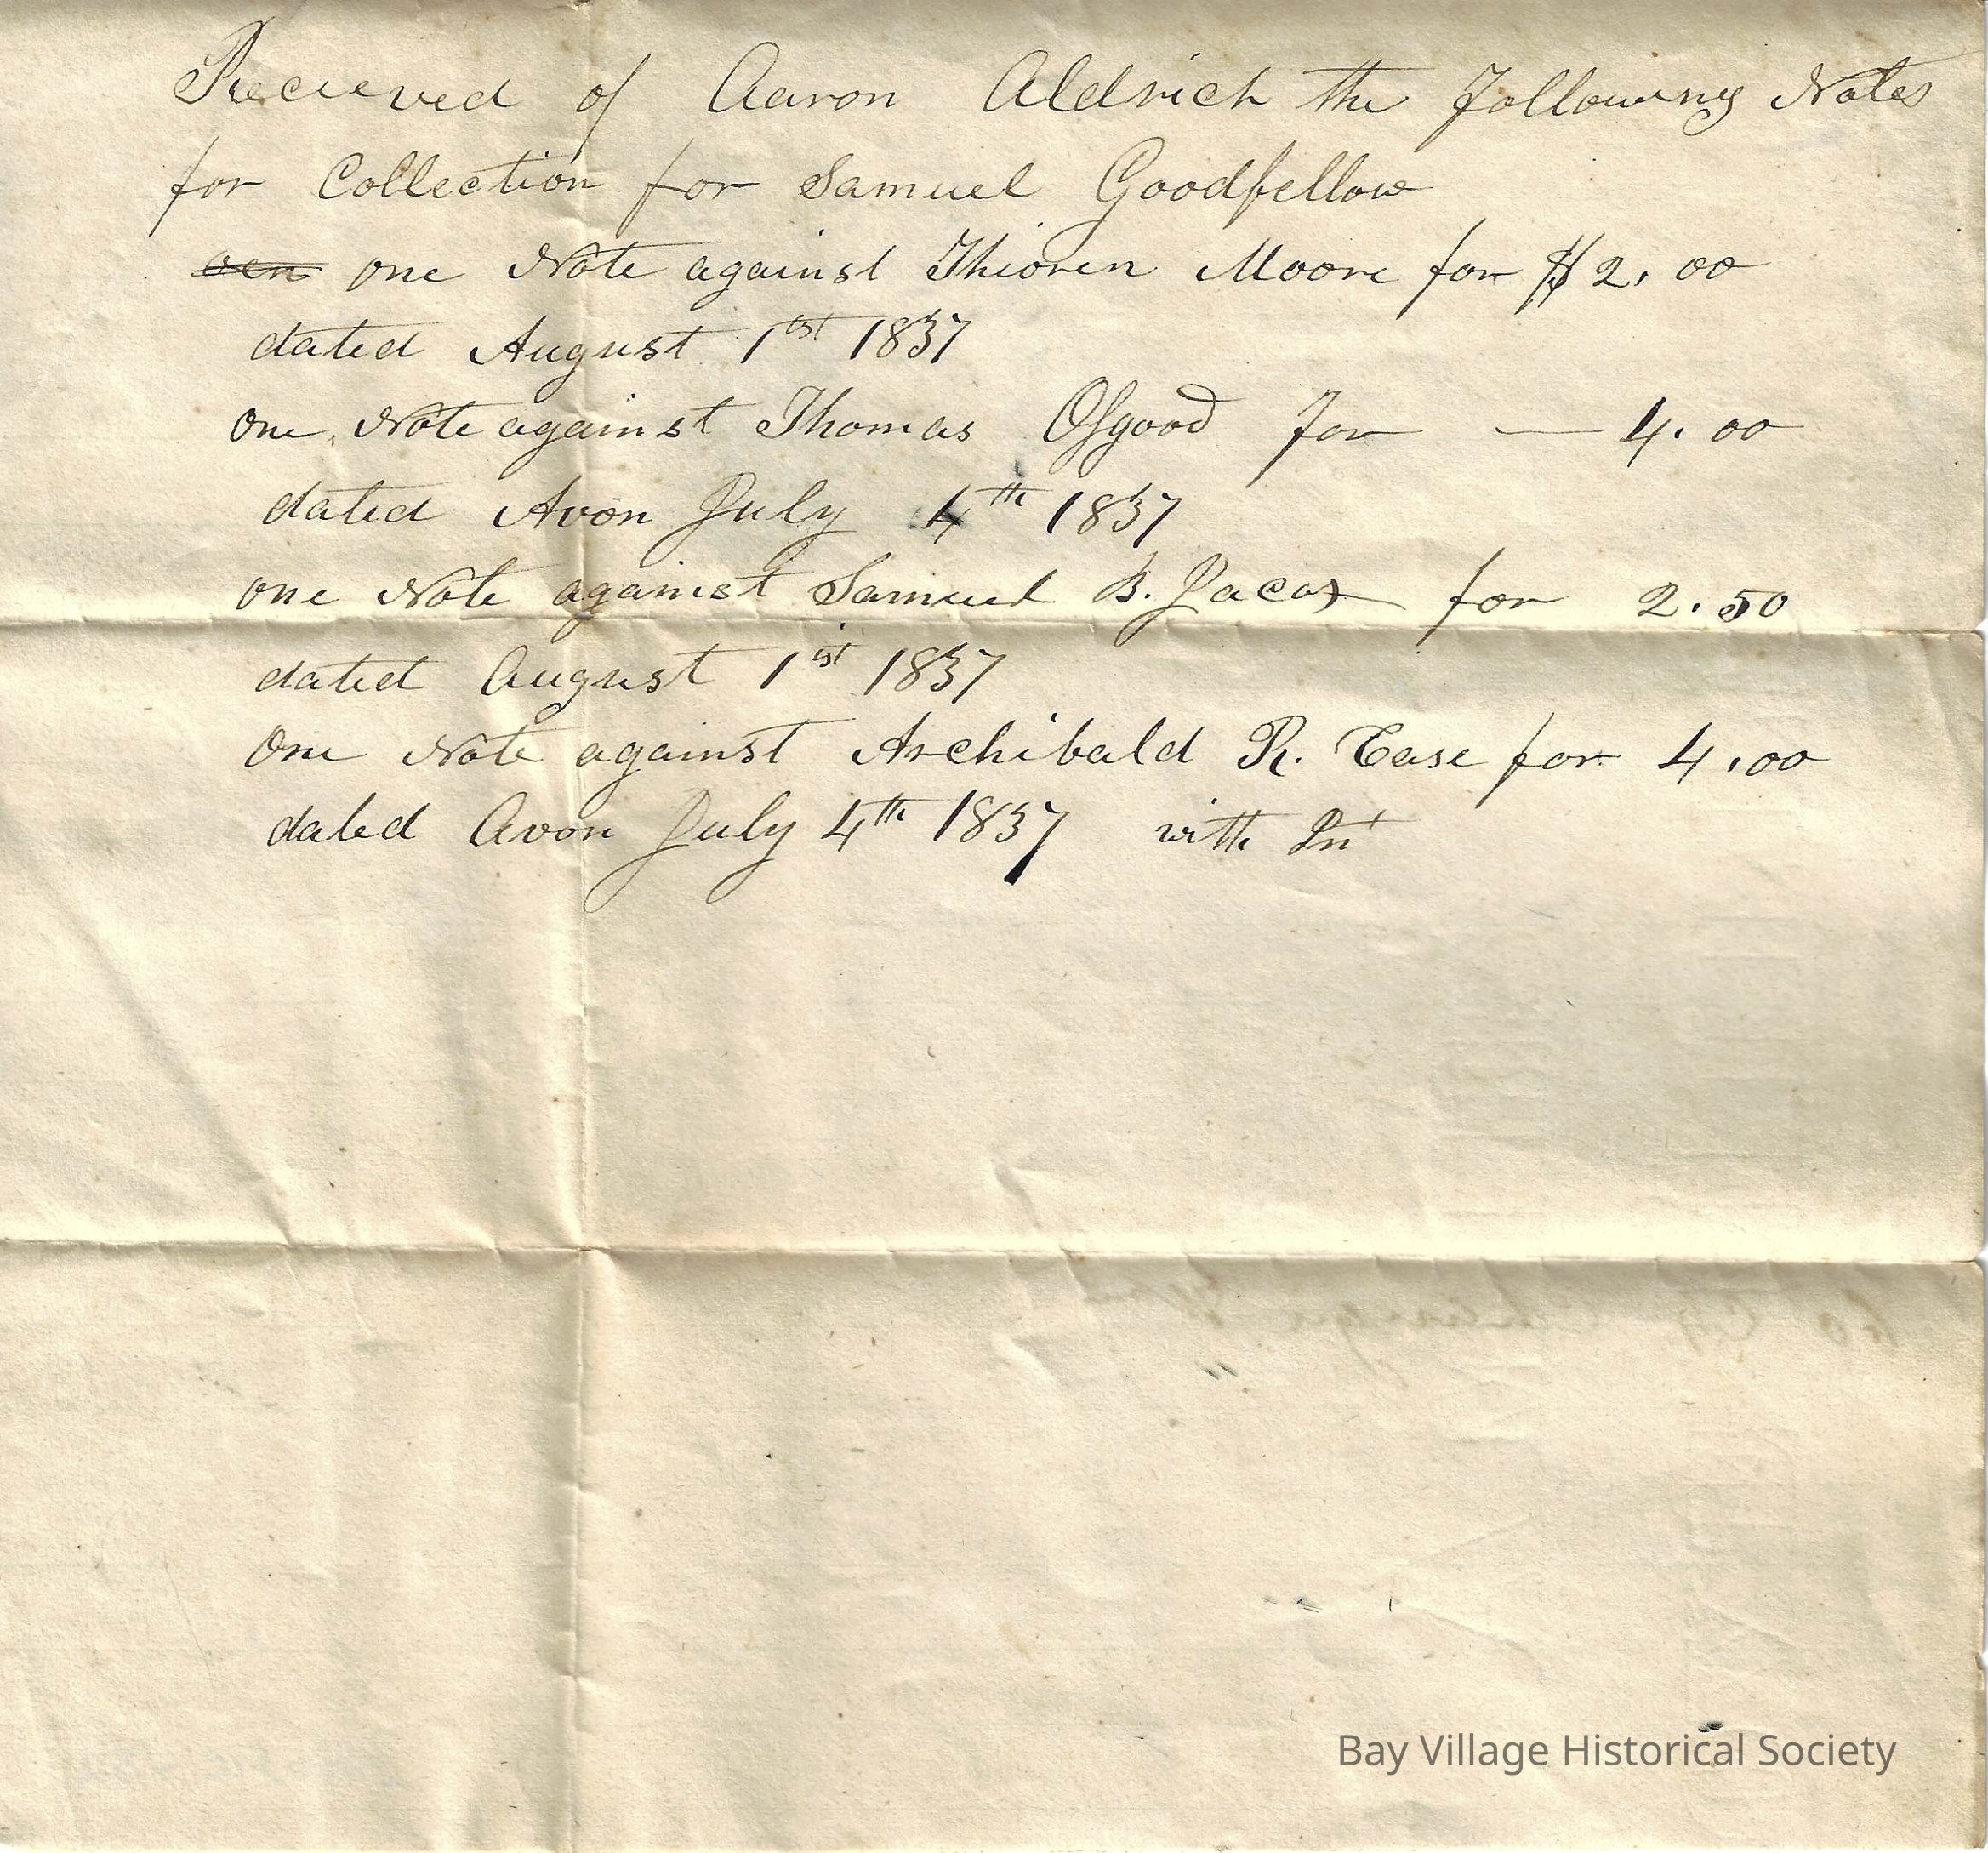 Recieved of Aaron Aldrich the Following Notes
for Collection for Samuel Goodfellow
one Note against Moore for $2.00
dated August 1st 1837
One Note against Thomas Osgood For — 4.00
dated Avon July 4th 1837
one Note against Samuel B. for 2.50
dated August 1st 1837
One Note against Archibald R. for 4.00
dated Avon July 4th 1837 with Int
Bay Village Historical Society